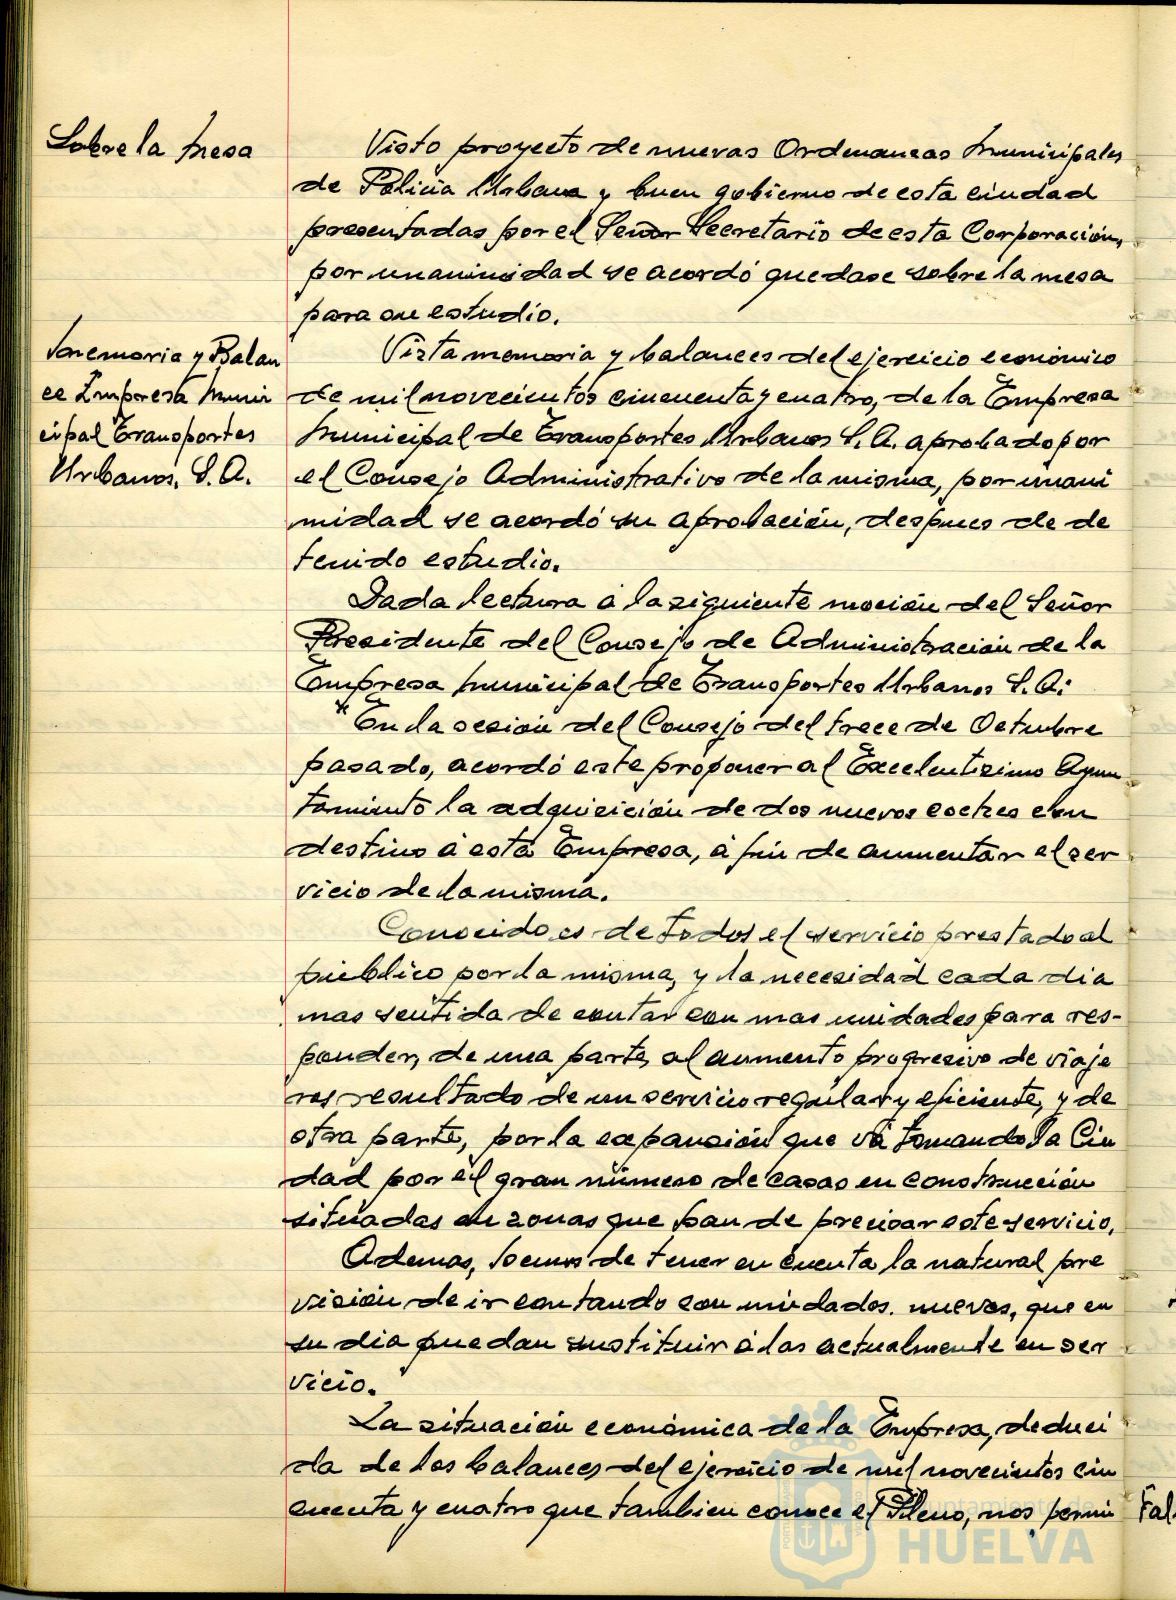 Sobre la mesa
Visto proyecto de nuevas Ordenanzas Municipales
de Policia Urbana y buen gobierno de esta ciudad
presentadas por el Señor Secretario de esta Corporación,
por unanimidad se acordó quedase sobre la mesa
para su estudio.
Memoria y Balan
ce Empresa Muni
cipal Transportes
Urbanos, S. A.
Vista memoria y balances del ejercicio económico
de mil novecientos cincuenta y cuatro, de la Empresa
Municipal de Transportes Urbanos S. A. aprobado por
el Consejo Administrativo de la misma, por unani
midad se acordó su aprobación, despues de de
tenido estudio.
Dada lectura á la siguiente moción del Señor
Presidente del Consejo de Administración de la
Empresa Municipal de Transportes Urbanos S. A:
"En la sesión del Consejo del trece de Octubre
pasado, acordó este proponer al Excelentisimo Ayun
tamiento la adquisición de dos nuevos coches con
destino á esta Empresa, á fin de aumentar el ser
vicio de la misma.
Conocido es de todos el servicio prestado al
público por la misma, y la necesidad cada dia
mas sentida de contar con mas unidades para res-
ponder, de una parte, al aumento progresivo de viaje
ros resultado de un servicio regular y eficiente, y de
otra parte, por la expansión que va tomando la Ciu
dad por el gran número de casas en construcción
situadas en zonas que han de precisar este servicio.
Ademas, hemos de tener en cuenta la natural pre
visión de ir contando con unidades nuevas, que en
su dia puedan sustituir á las actualmente en ser
vicio.
La situación económica de la Empresa, deduci
da de los balances del ejercicio de mil novecientos cin
cuenta y cuatro que tambien conoce el Pleno, nos permi
Fal
Ayuntamiento de
HUELVA